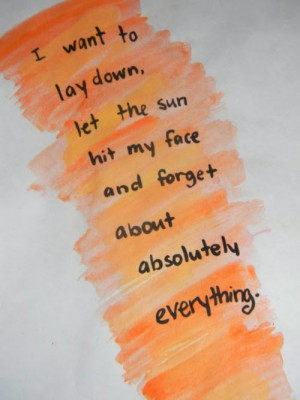 I want to
lay down,
let the sun
hit my face
and forget
about
absolutely
everything.